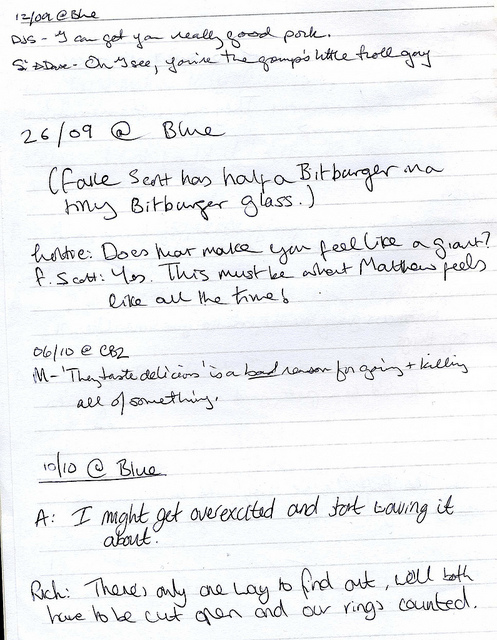 12/09 @ Blue
DJS - I can get you really good pork.
Si → Dave - Oh I see, you're the group's little troll guy
26/09 @ Blue
(Fake Scott has half a Bitburger in a
tiny Bitburger glass.)
Lottie: Does that make you feel like a giant?
F. Scott: Yes. This must be what Matthew feels
like all the time!
06/10 @ CB2
M - 'They taste delicious' is a bad reason for going + killing
all of something.
10/10 @ Blue
A: I might get overexcited and start waving it
about.
Rich: There's only one way to find out, we'll both
have to be cut open and our rings counted.